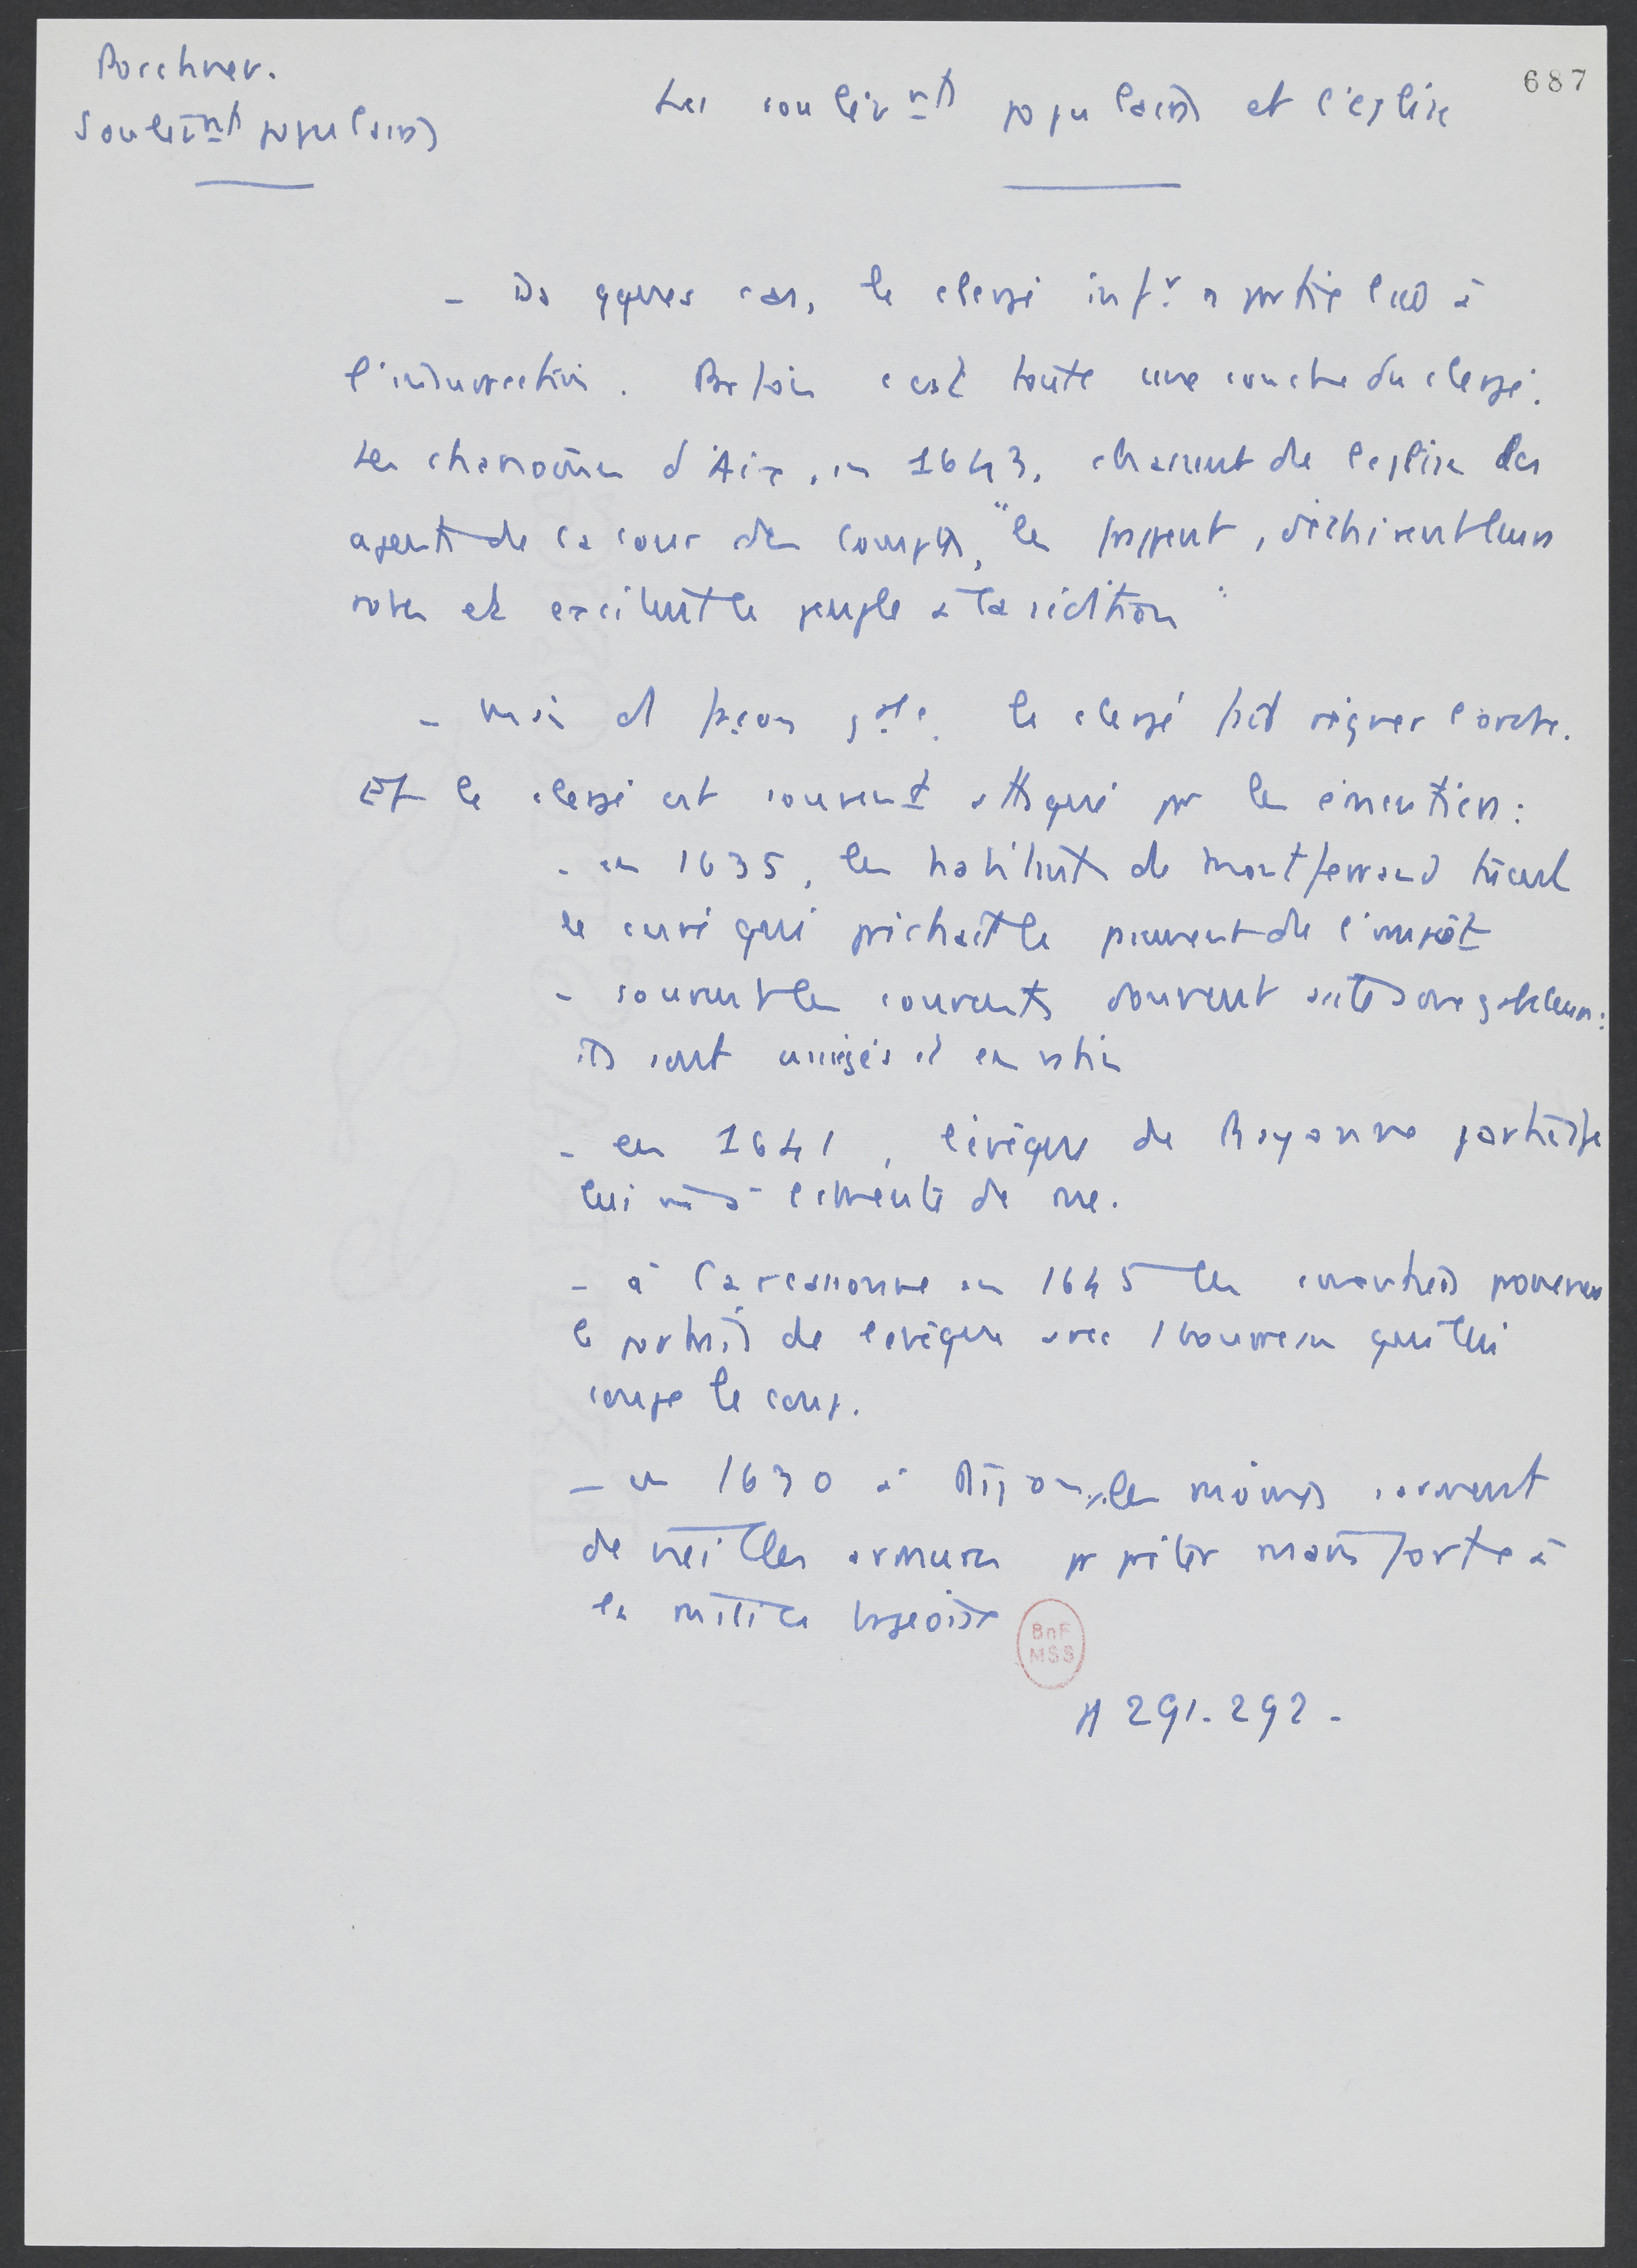 687
Porchnev.
Soulèvnts populaires
Les soulèvnts populaires et l'église
- Ds qques cas, le clergé infr a participé à
l'insurrection. Parfois c'est toute une couche du clergé.
Les chanoines d'Aix, en 1643, chassent de l'église les
agents de la cour des comptes, "les frappent, déchirent leurs
robes et excitent le peuple à la sédition"
- mais d façon gale. le clergé fait régner l'ordre.
Et le clergé est souvent attaqué pr les émeutiers :
- en 1635, les habitants de Montferrand tuent
le curé qui prêchait le paiement de l'impôt
- souvent les couvents donnent asile aux gabeleurs :
ils sont assiégés et
- en 1641, l'évêque de Bayonne
lui de rue.
- à Carcassonne en 1645 les
le portrait de l'évêque avec 1 bourreau qui lui
coupe le coup.
- en 1630 à Dijon, les moines
de vieilles armures pr prêter main forte à
la milice bourgeoise
BnF
MSS
A 291-292-